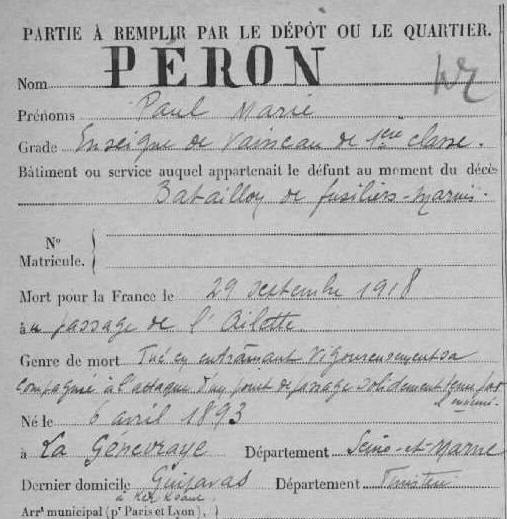 PARTIE À REMPLIR PAR LE DÉPÔT OU LE QUARTIER.
Nom PERON
Prénoms Paul Marie
Grade Enseigne de Vaisseau de 1ère classe.
Bâtiment ou service auquel appartenait le défunt au moment du décès
Bataillon de fusiliers-marins.
N°
Matricule.
Mort pour la France le 29 septembre 1918
à u passage de l'Ailette
Genre de mort Tué en entraînant vigoureusement sa
compagnie à l'attaque d'un point de passage solidement tenu par
l'ennemi.
Né le 6 avril 1893
à La Genevraye Département Seine-et-Marne
Dernier domicile Guipavas Département Finistère
à
Arrt municipal (pr Paris et Lyon),